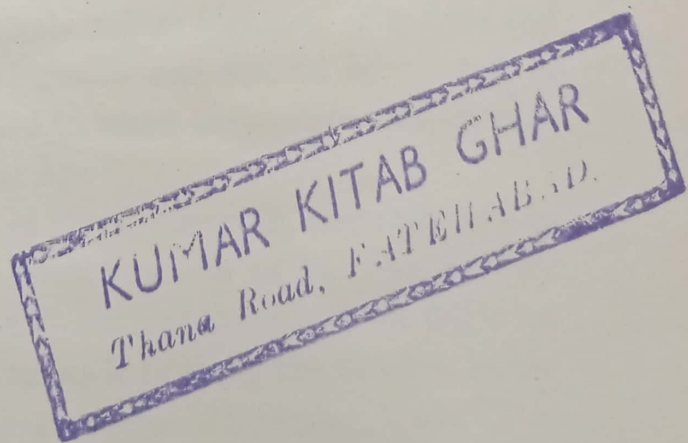 KUMAR KITAB GHAR
Thana Road, FATEHABAD.